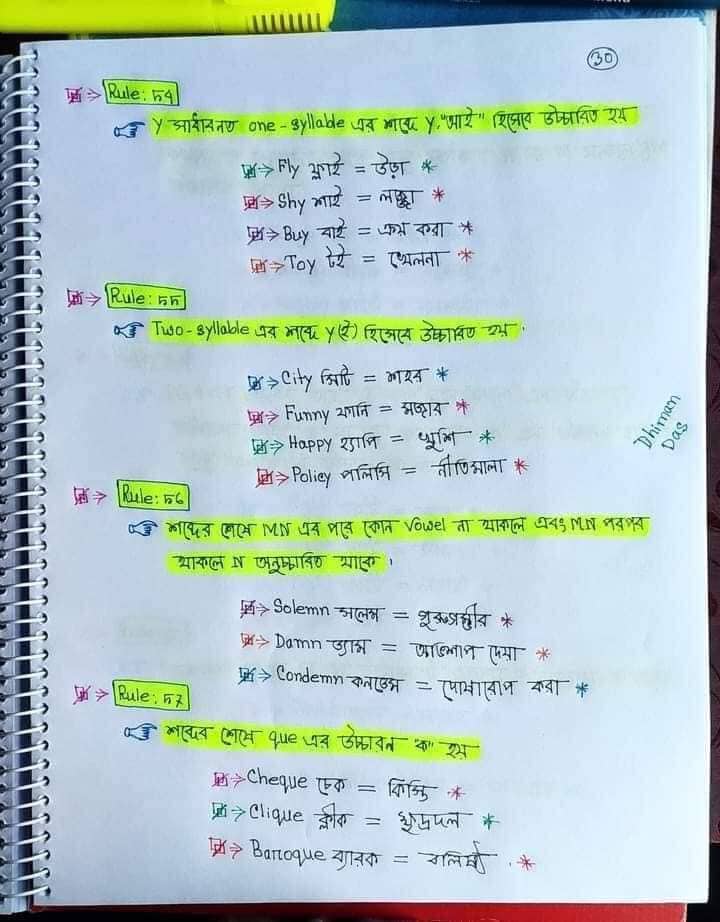 30
Rule: 54
Y সাধারনত one-syllable এর শব্দে Y "আই" হিসেবে উচ্চারিত হয়
Fly ফ্লাই = উড়া *
Shy শাই = লজ্জা *
Buy বাই = ক্রয় করা *
Toy টই = খেলনা *
Rule: 55
Two-syllable এর শব্দে Y (ই) হিসেবে উচ্চারিত হয়.
City সিটি = শহর *
Funny ফানি = মজার *
Happy হ্যাপি = খুশি *
Policy পলিসি = নীতিমালা *
Dhiman
Das
Rule: 56
শব্দের শেষে MN এর পরে কোন Vowel না থাকলে এবং MN পরপর
থাকলে N অনুচ্চারিত থাকে।
Solemn সলেম = গুরুগম্ভীর *
Damn ড্যাম = অভিশাপ দেয়া *
Condemn কনডেম = দোষারোপ করা *
Rule: 57
শব্দের শেষে que এর উচ্চারন "ক" হয়
Cheque চেক = কিস্তি *
Clique ক্লীক = ক্ষুদ্রদল *
Barroque ব্যারক = . *